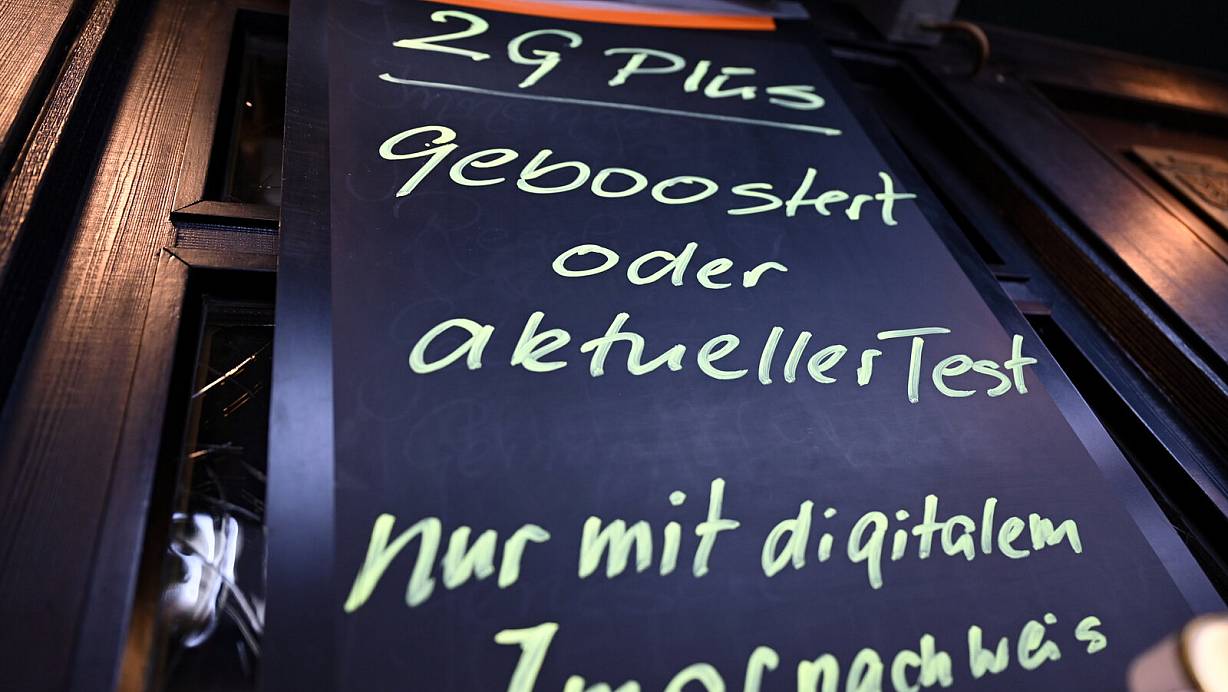 2G Plus
Geboostert
oder
aktueller Test
nur mit digitalem
Impfnachweis